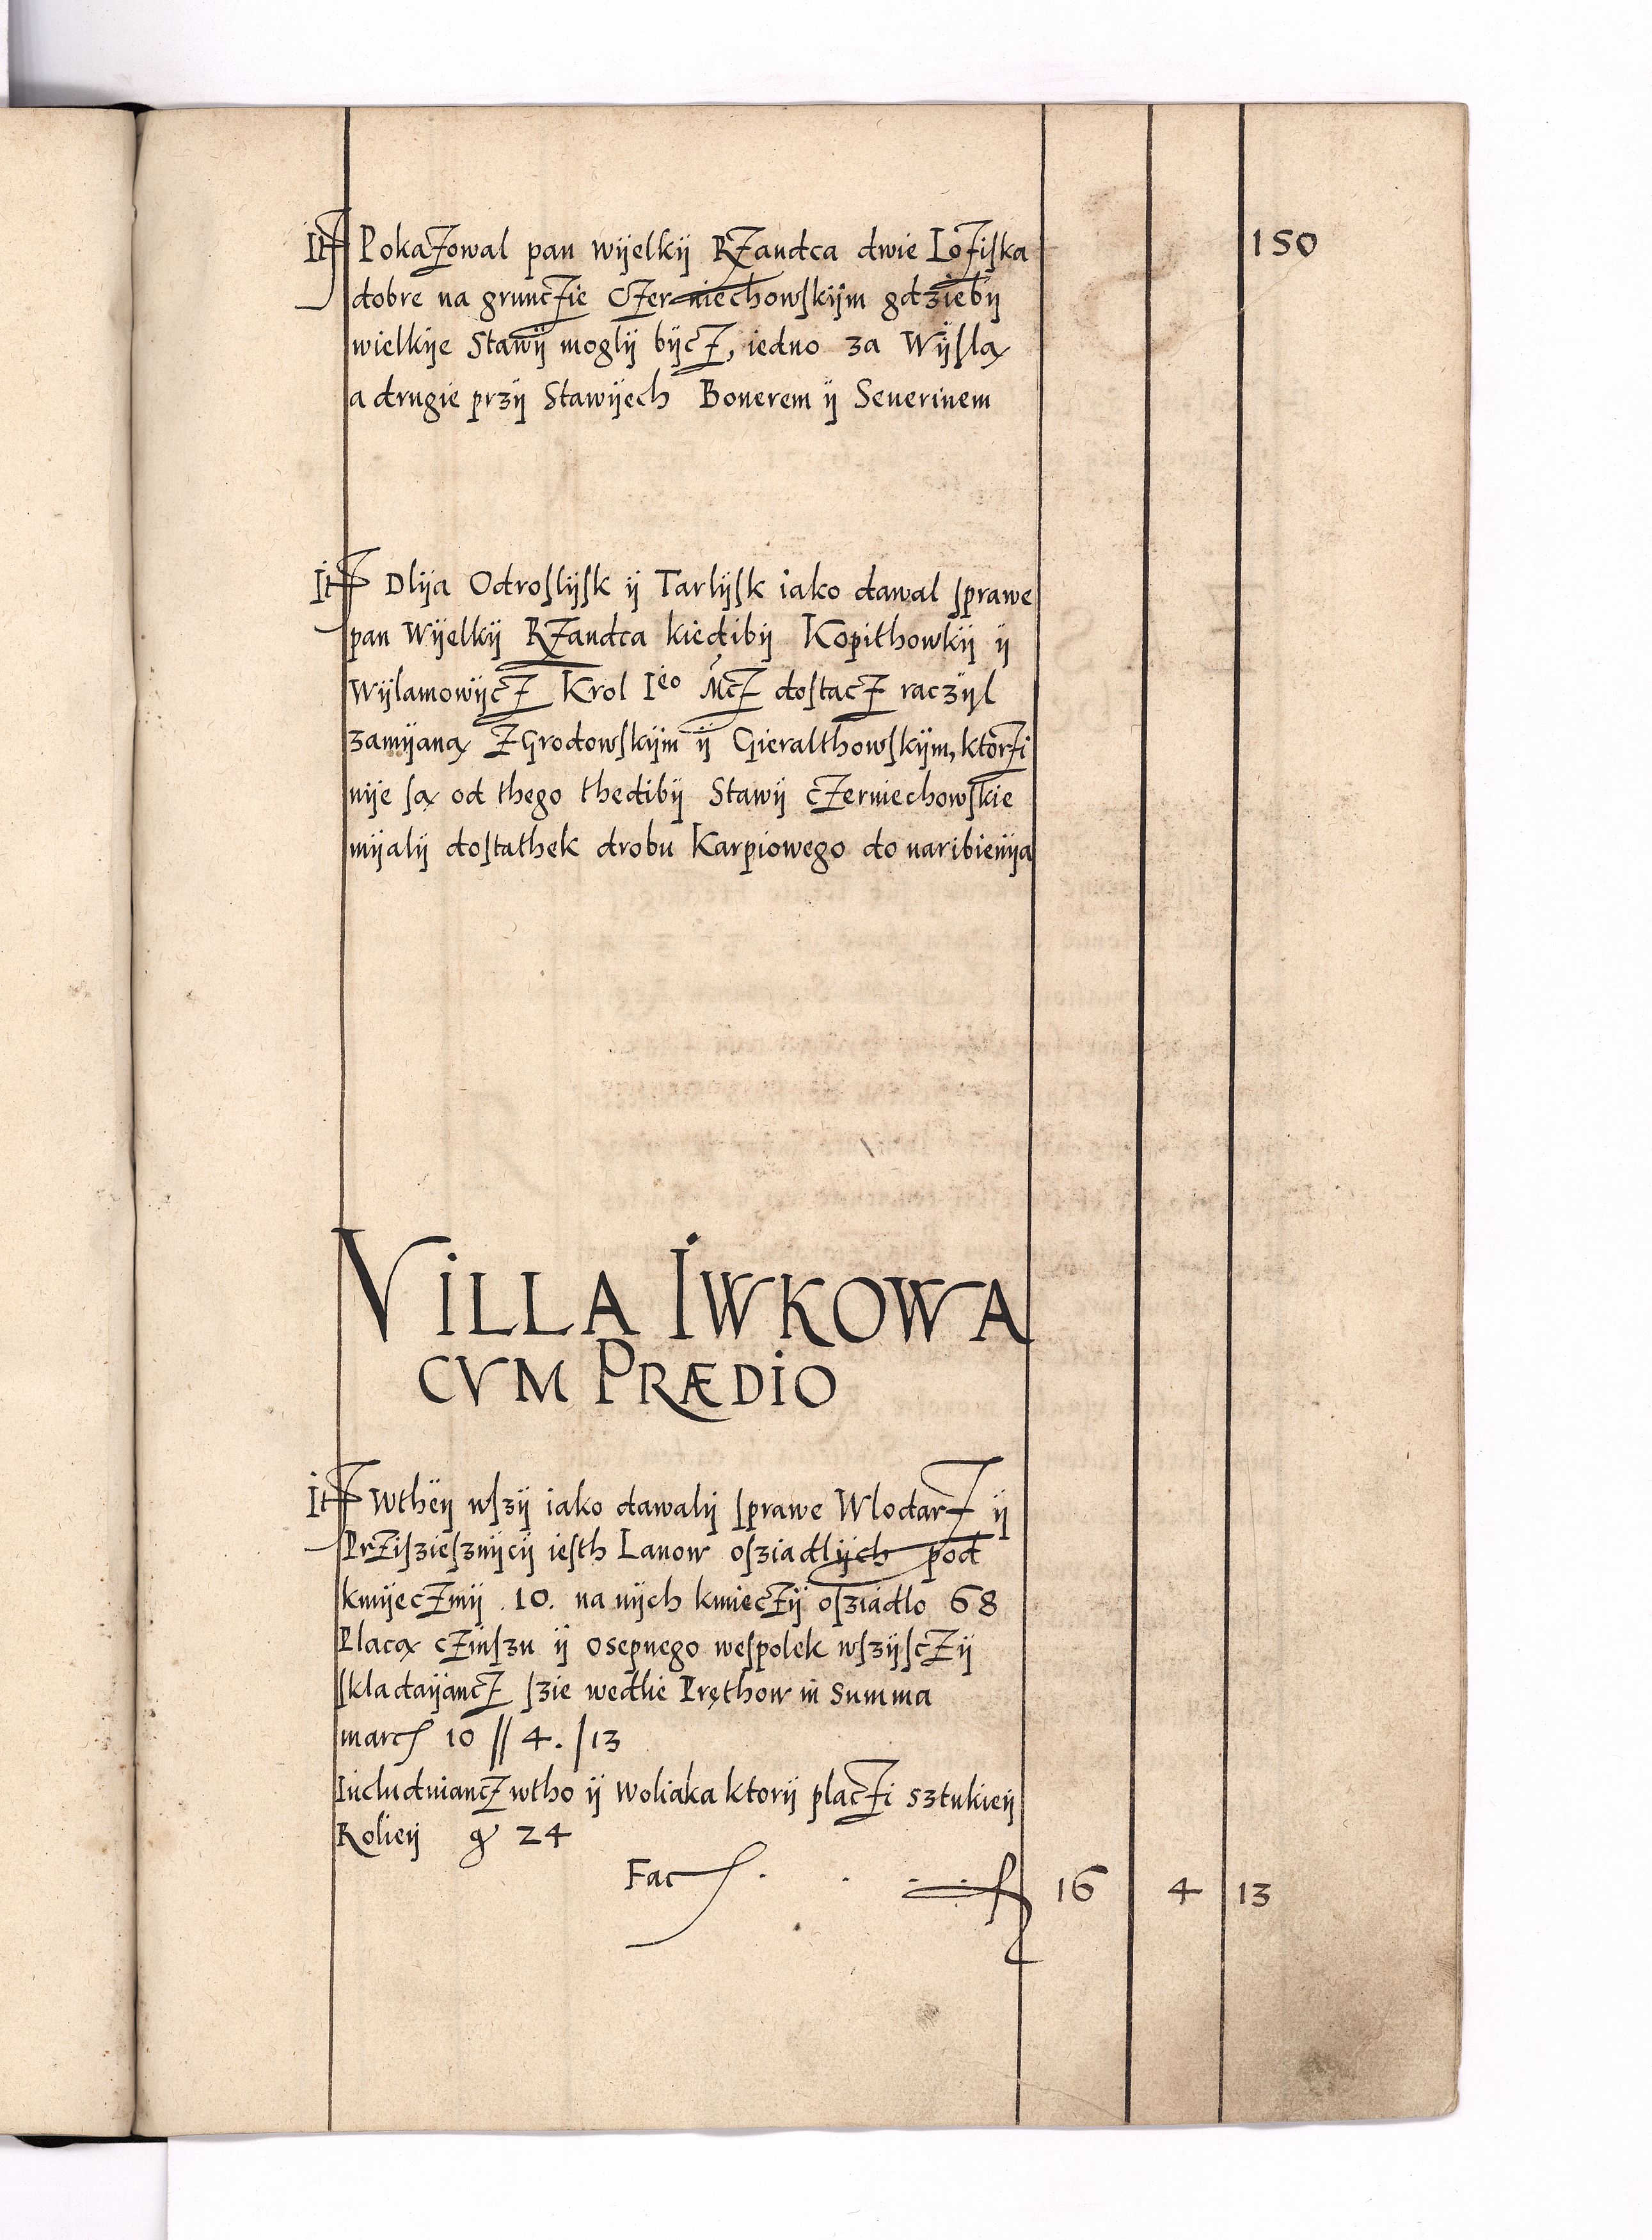 150
It Pokazowal pan wÿelkÿ Rzandca dwie Loziſka
dobre na grunczie Czerniechowſkÿm gdziebÿ
wielkÿe Stawÿ moglÿ bÿcz, iedno za Wÿſlą
a drugie przÿ Stawÿech Bonerem ÿ Seuerinem
It Dlÿa Odroſlÿſk ÿ Tarlÿſk iako dawal ſprawe
pan Wÿelkÿ Rzandca kiedibÿ Kopithowkÿ ÿ
Wÿlamowÿcz Krol Ieo Mcz doſtacz raczÿl
zamÿaną z Grodowſkÿm ÿ Gieralthowſkÿm, ktorzi
nÿe ſą od thego thedibÿ Stawÿ czerniechowſkie
mÿalÿ doſtathek drobu Karpiowego do naribienÿa
VILLA IWKOWA
CVM PRÆDIO
It Wtheÿ wſzÿ iako dawalÿ ſprawe Wlodarz ÿ
Prziſzieſznÿcÿ ieſth Lanow oſziadlÿch pod
kmÿeczmÿ .10. na nÿch kmieczÿ oſziadlo 68
Placą czinſzu ÿ oſepnego weſpolek wſzÿſczÿ
ſkladaÿancz ſzie wedlie Pręthow in Summa
marc 10 // 4. /13
Includuiancz wtho ÿ Woliaka ktorÿ placzi sztukieÿ
Rolieÿ gr 24
Fac . . . 16 4 13